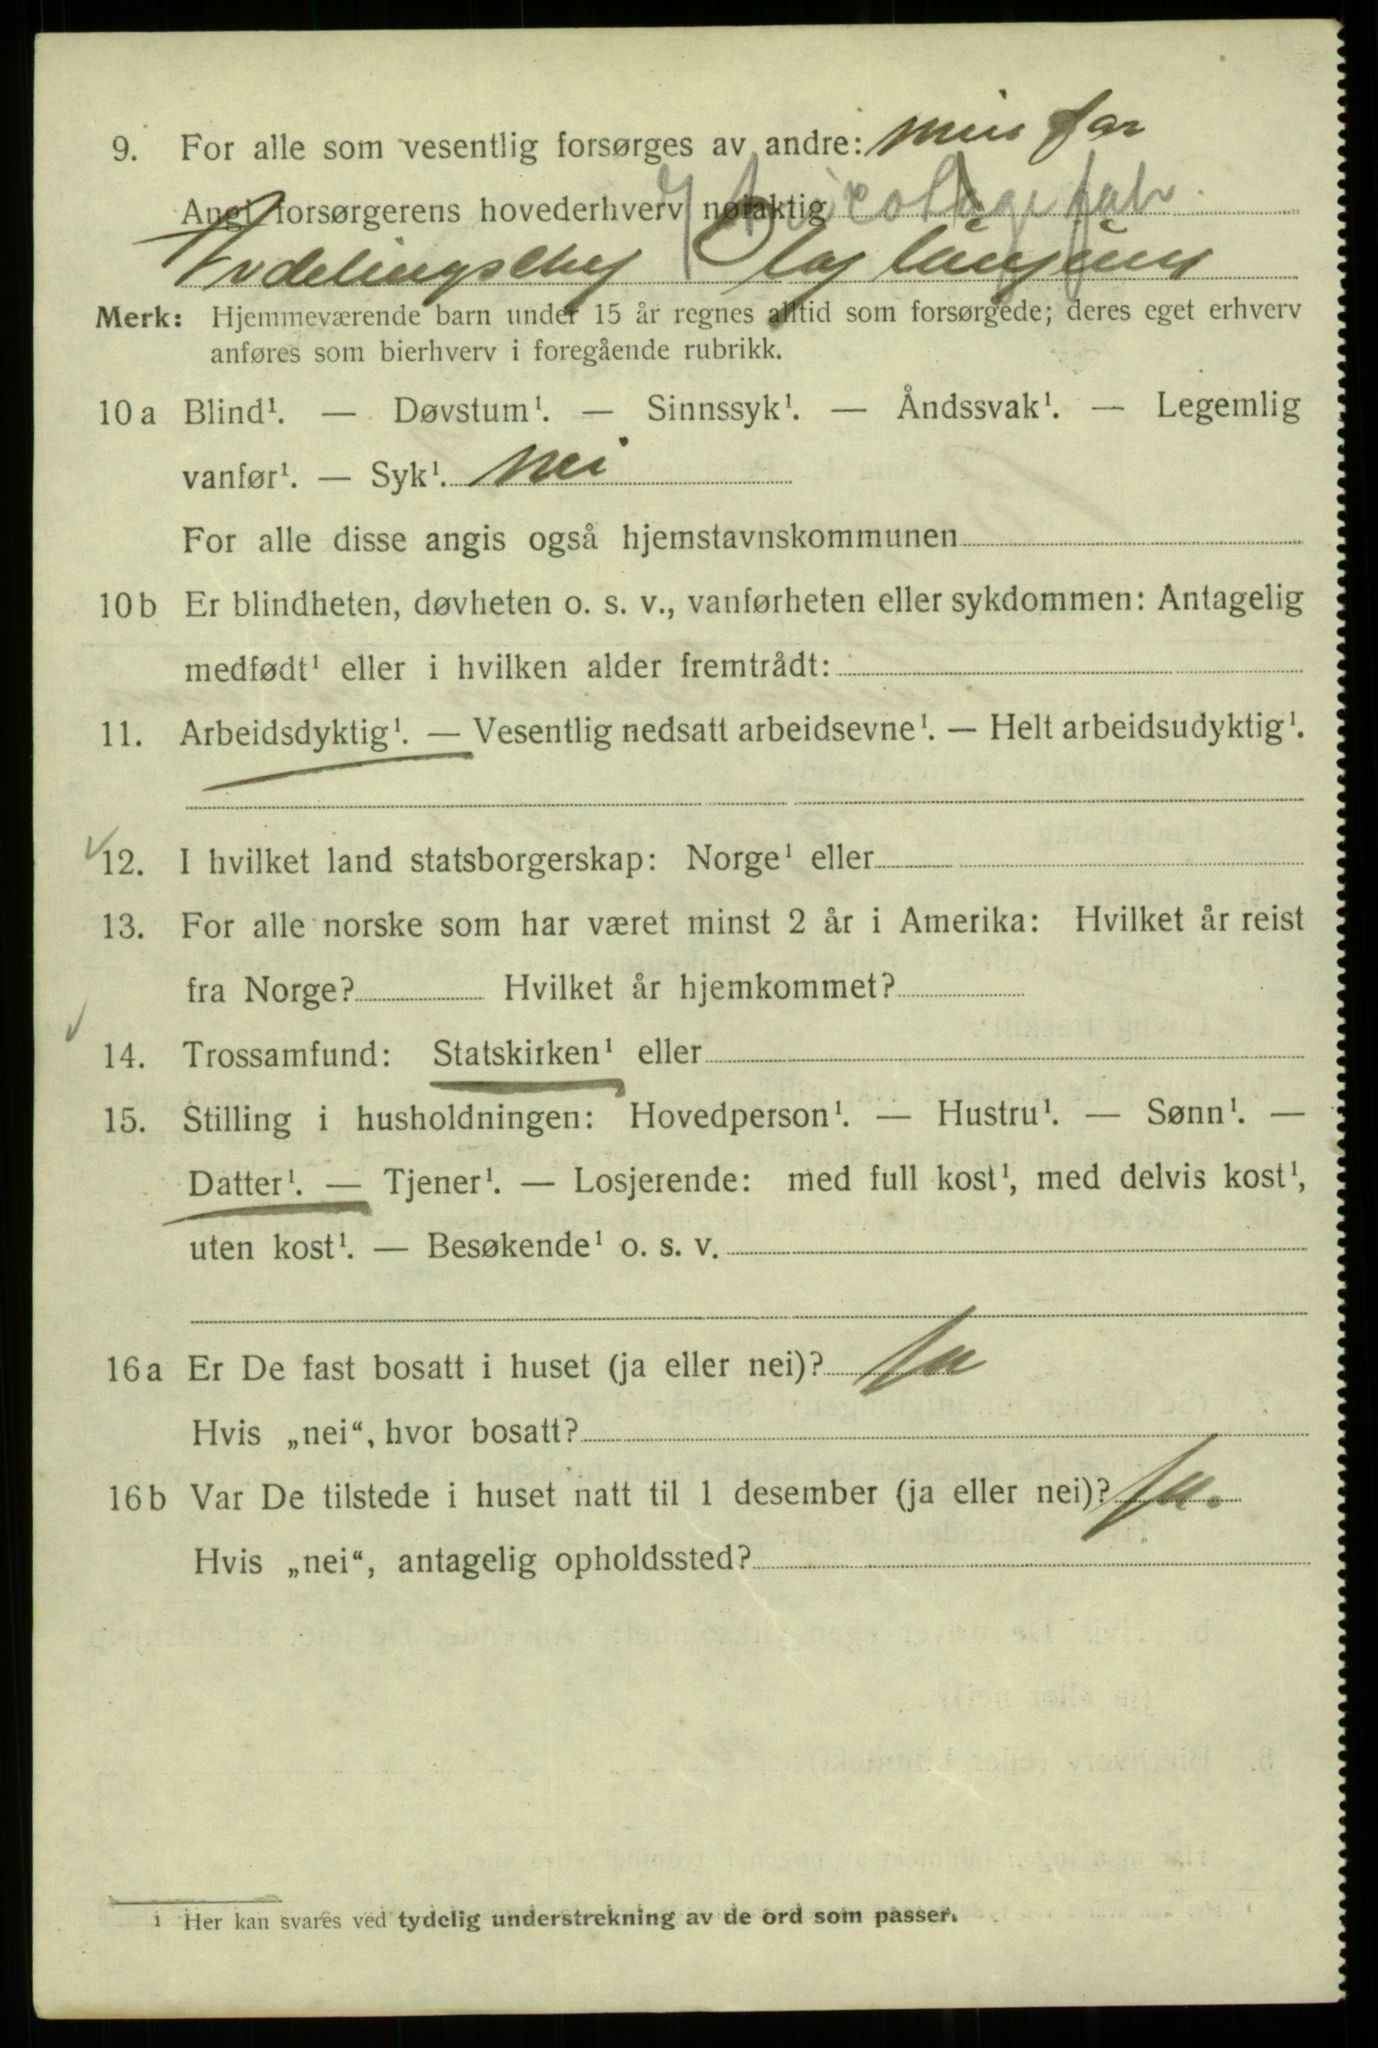 9. For alle som vesentlig forsørges av andre: min far
Angi forsørgerens hovederhverv nøiaktig i Tricotagefabr.
Avdelingschef Olaf
Merk: Hjemmeværende barn under 15 år regnes alltid som forsørgede; deres eget erhverv
anføres som bierhverv i foregående rubrikk.
10 a Blind¹. — Døvstum¹. — Sinnssyk¹. — Åndssvak¹. — Legemlig
vanfør¹. — Syk¹. nei
For alle disse angis også hjemstavnskommunen
10 b Er blindheten, døvheten o. s. v., vanførheten eller sykdommen: Antagelig
medfødt¹ eller i hvilken alder fremtrådt:
11. Arbeidsdyktig¹. — Vesentlig nedsatt arbeidsevne¹. — Helt arbeidsudyktig¹.
12. I hvilket land statsborgerskap: Norge¹ eller
13. For alle norske som har været minst 2 år i Amerika: Hvilket år reist
fra Norge? Hvilket år hjemkommet?
14. Trossamfund: Statskirken¹ eller
15. Stilling i husholdningen: Hovedperson¹. — Hustru¹. — Sønn¹. —
Datter¹. — Tjener¹. — Losjerende: med full kost¹, med delvis kost¹,
uten kost¹. — Besøkende¹ o. s. v.
16 a Er De fast bosatt i huset (ja eller nei)? ja
Hvis „nei“, hvor bosatt?
16 b Var De tilstede i huset natt til 1 desember (ja eller nei)? ja.
Hvis „nei“, antagelig opholdssted?
1 Her kan svares ved tydelig understrekning av de ord som passer.